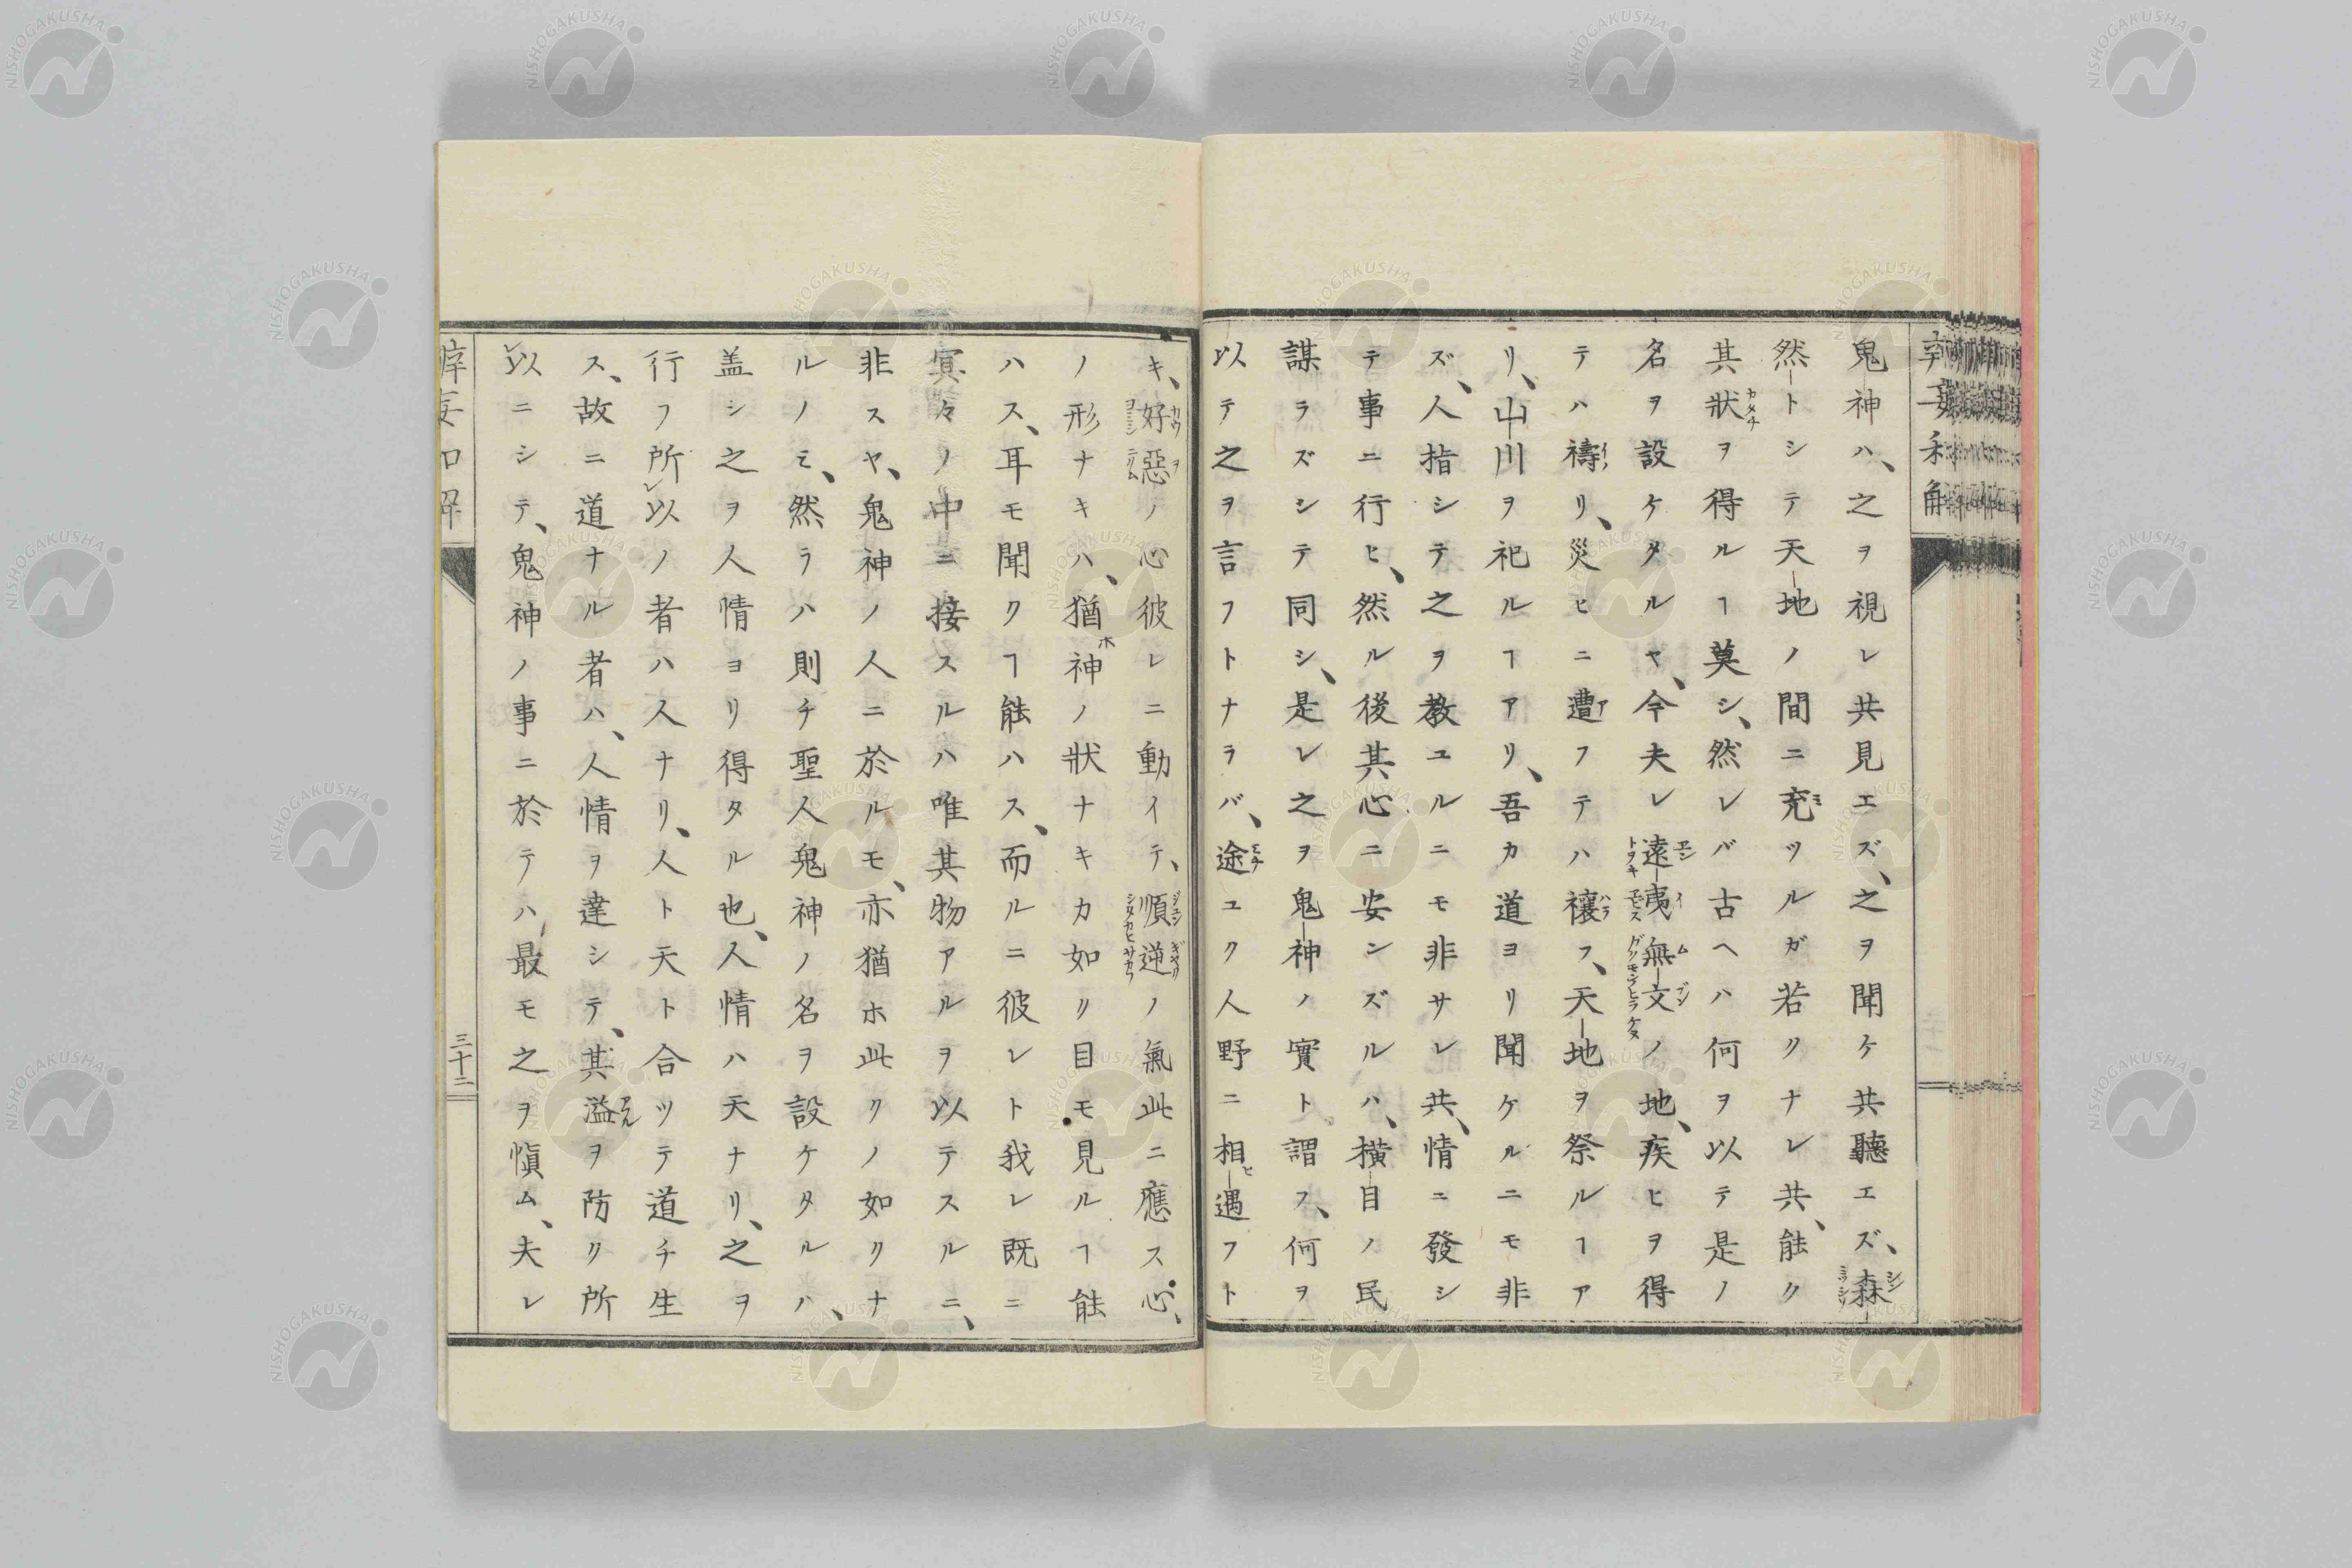 鬼神ハ、之ヲ視レ共見エズ、之ヲ聞ケ共聽エズ、森
然トシテ天地ノ間ニ充ツルガ若クナレ共、能ク
其狀ヲ得ルヿ莫シ、然レバ古ヘハ何ヲ以テ是ノ
名ヲ設ケタルヤ、今夫レ遠夷無文ノ地、疾ヒヲ得
テハ禱リ、災ヒニ遭フテハ禳フ、天地ヲ祭ルヿア
リ、山川ヲ祀ルヿアリ、吾カ道ヨリ聞ケルニモ非
ズ、人指シテ之ヲ教ユルニモ非サレ共、情ニ發シ
テ事ニ行ヒ、然ル後其心ニ安ンズルハ、橫目ノ民
謀ラズシテ同シ、是レ之ヲ鬼神ノ實ト謂フ、何ヲ
以テ之ヲ言フトナラバ、途ユク人野ニ相遇フト
キ、好惡ノ心彼レニ動イテ、順逆ノ氣此ニ應ス心、
ノ形ナキハ、猶神ノ狀ナキカ如リ目モ見ルヿ能
ハス、耳モ聞クヿ能ハス、而ルニ彼レト我レ既ニ
冥々ノ中ニ接スルハ唯其物アルヲ以テスルニ、
非スヤ、鬼神ノ人ニ於ルモ、亦猶ホ此クノ如クナ
ルノモ、然ラハ則チ聖人鬼神ノ名ヲ設ケタルハ、
盖シ之ヲ人情ヨリ得タル也、人情ハ天ナリ、之ヲ
行フ所以ノ者ハ人ナリ、人ト天ト合ツテ道チ生
ス、故ニ道ナル者ハ、人情ヲ達シテ、其溢ヲ防ク所
以ニシテ、鬼神ノ事ニ於テハ最モ之ヲ愼ム、夫レ
三十二